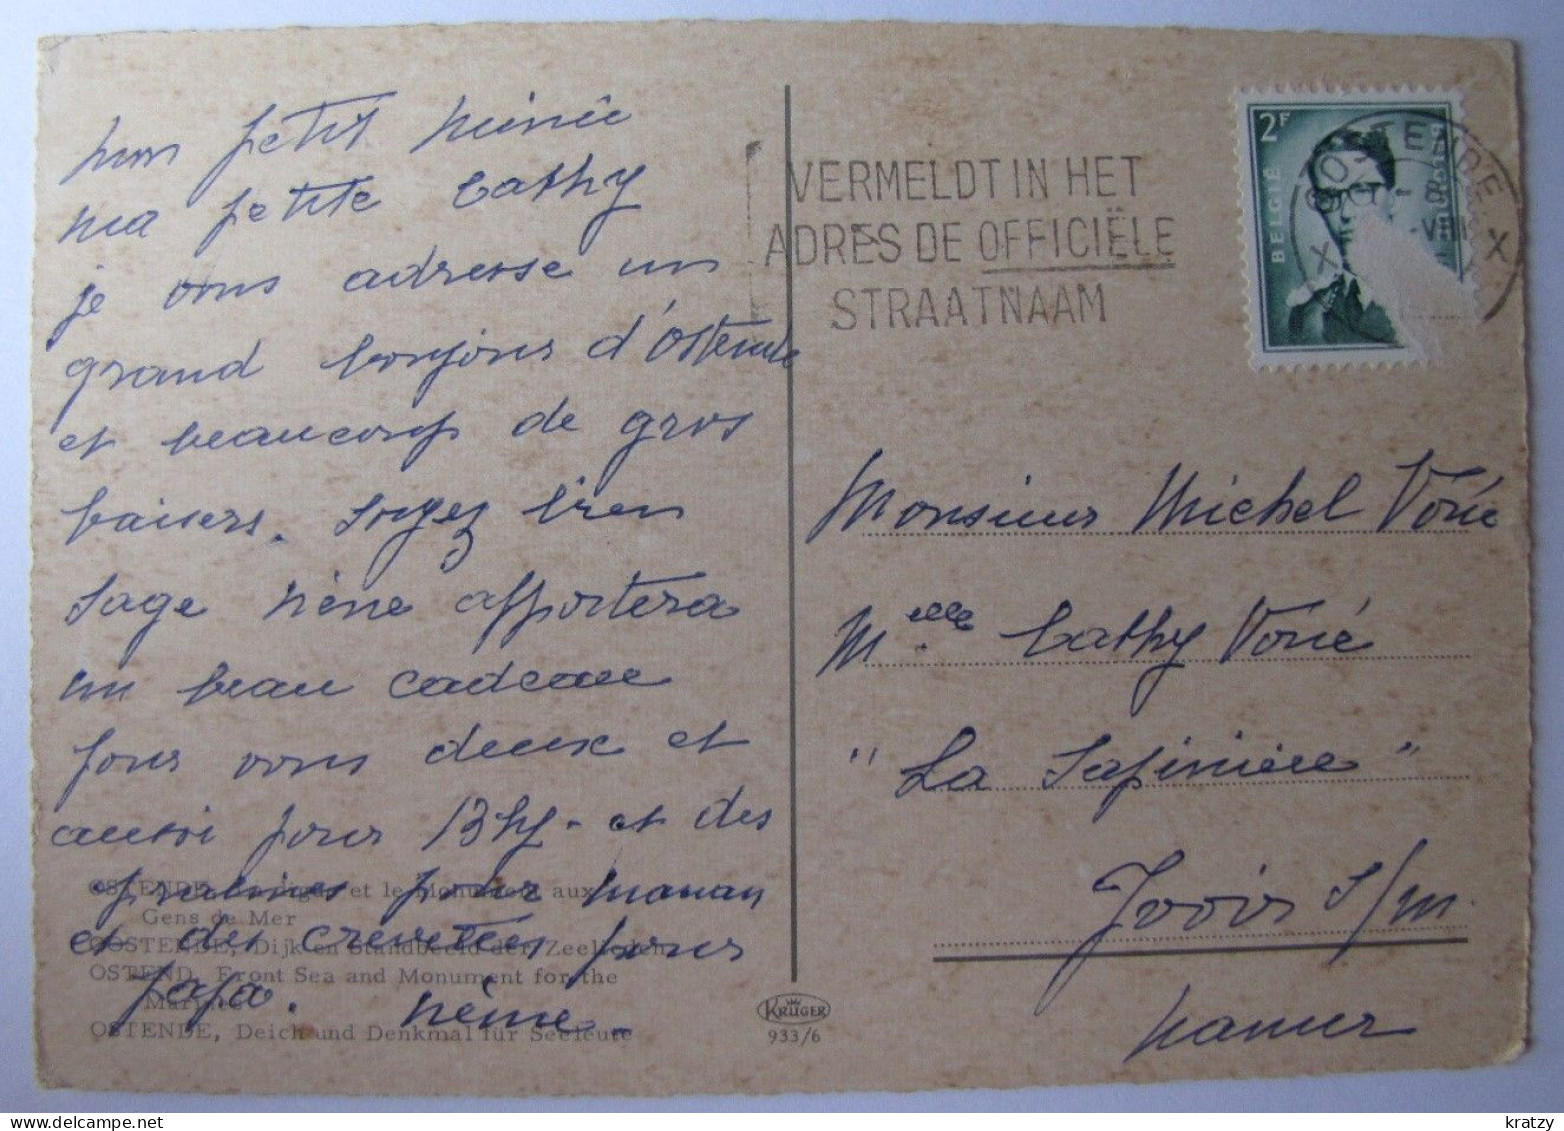 mon petit
ma petite Cathy
je vous adresse un
grand bonjour d'Ostende
et beaucoup de gros
baisers. Soyez bien
sage Nènè apportera
un beau cadeau
pour vous deux et
aussi pour et des
pralines pour maman
et des crevettes pour
papa. Nènè
OSTENDE, La digue et le Monument aux
Gens de Mer
OOSTENDE, Dijk en Standbeeld der Zeelieden
OSTEND, Front Sea and Monument for the
Marines
OSTENDE, Deich und Denkmal für Seeleute
KRÜGER
933/6
VERMELDT IN HET
ADRES DE OFFICIËLE
STRAATNAAM
2F
BELGIË
OOSTENDE
X X
-8
-VIII
Monsieur Michel Voué
Melle Cathy Voué
"La Sapinière"
Yvoir s/m.
Namur
kratzy